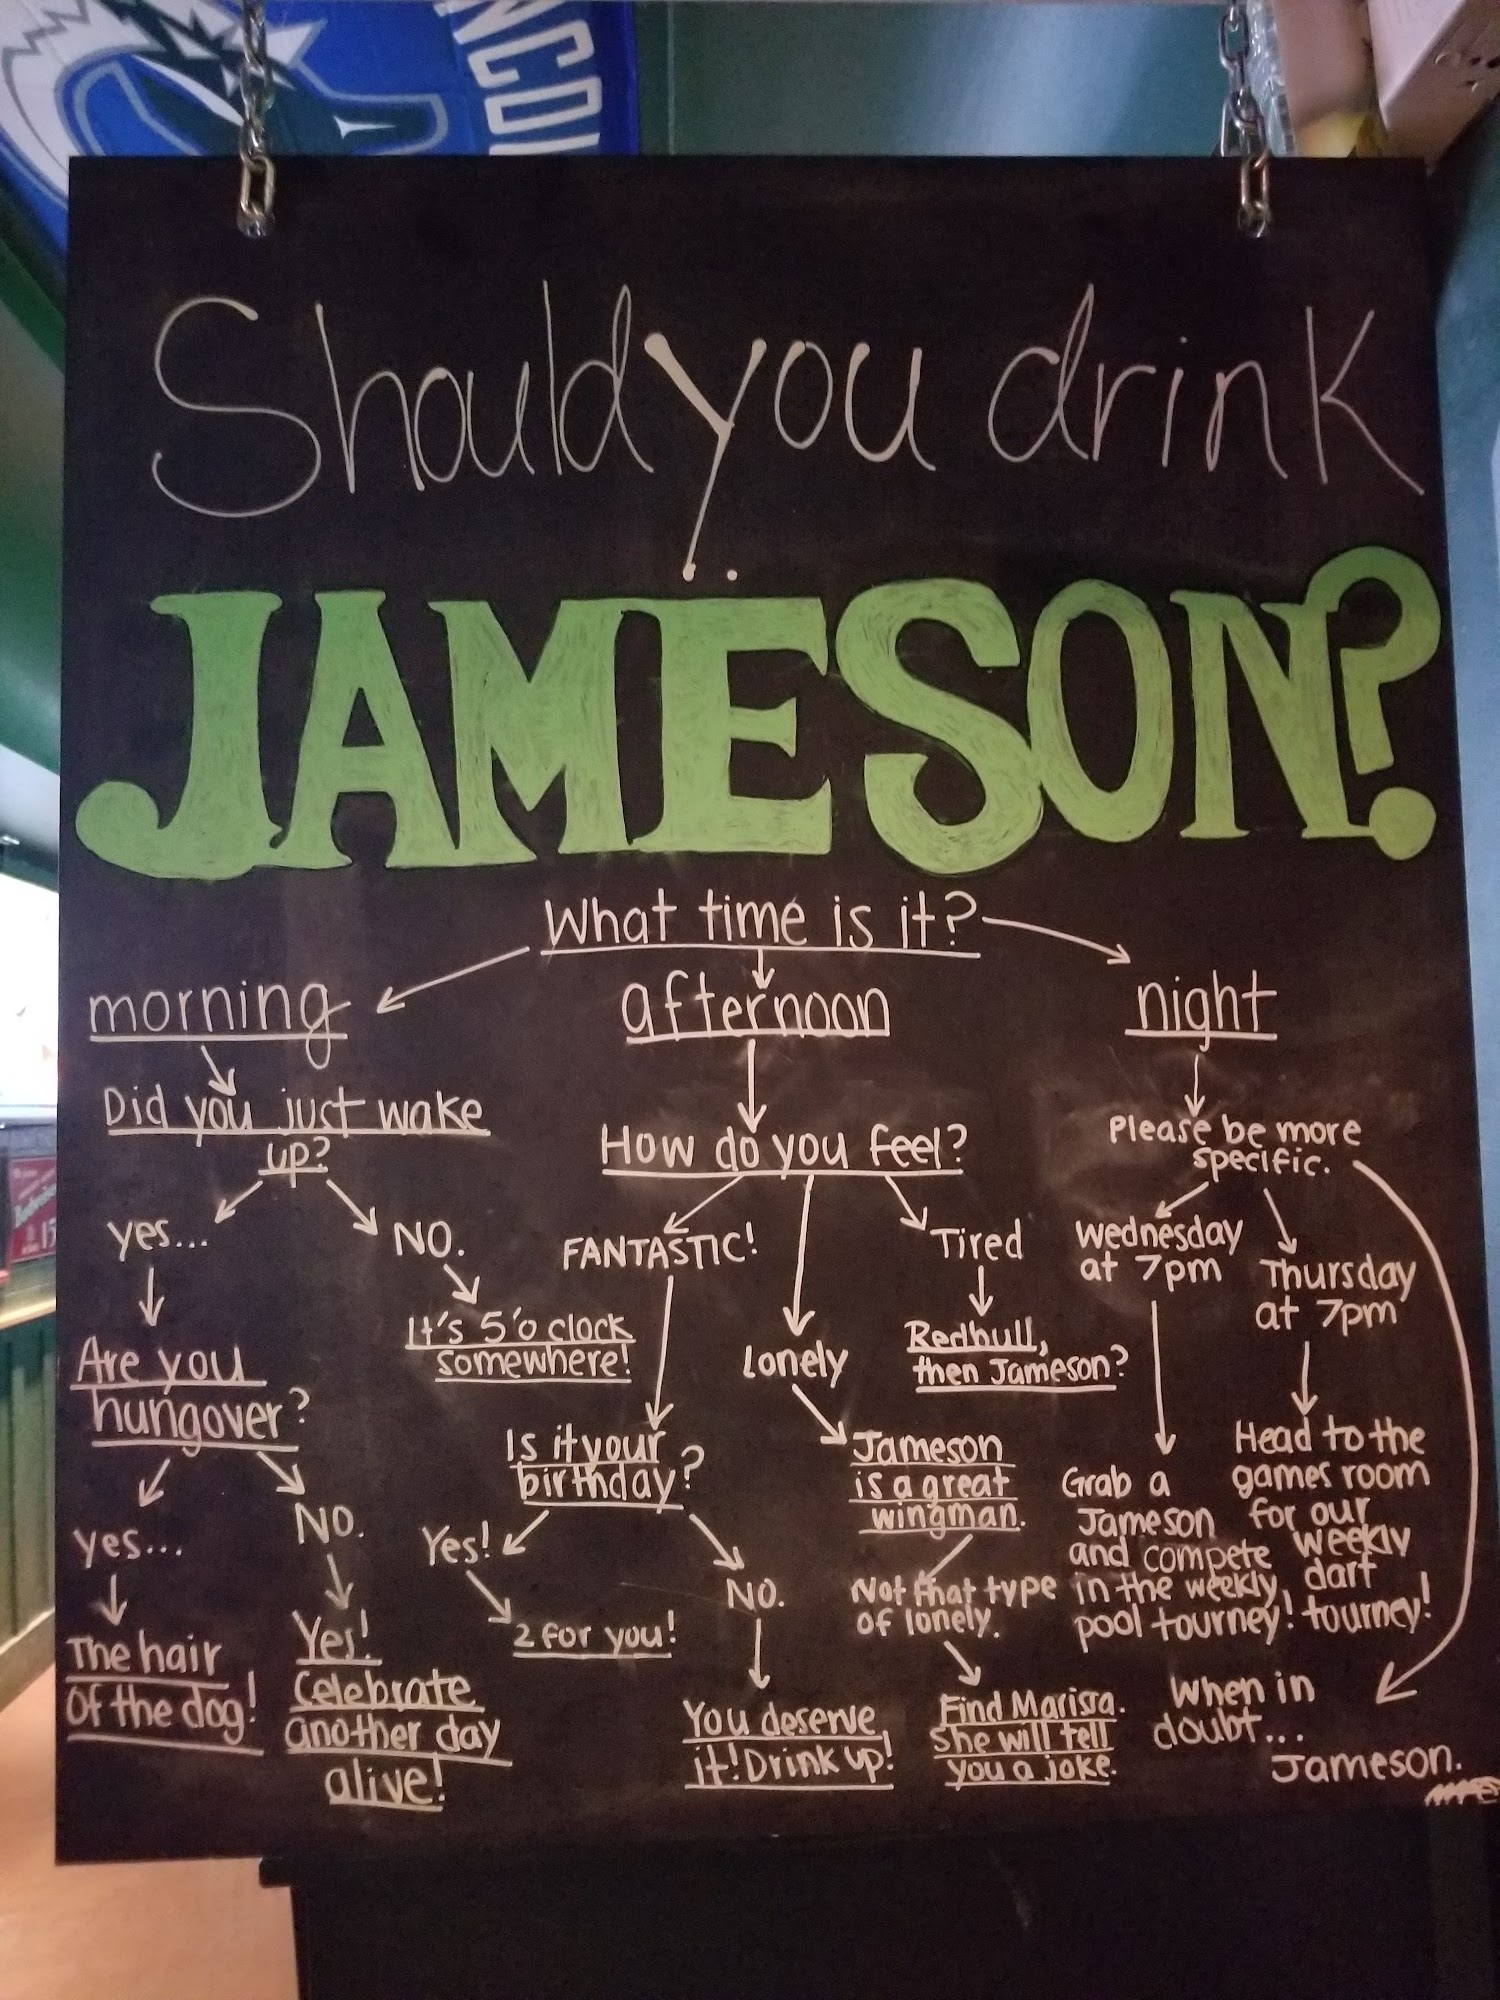 NCOU
Should you drink
JAMESON?
What time is it?
morning
afternoon
night
Did you just wake
up?
yes...
NO.
It's 5'o clock
somewhere!
Are you
hungover?
yes...
The hair
of the dog!
NO.
Yes!
Celebrate
another day
alive!
How do you feel?
FANTASTIC!
Is it your
birthday?
Yes!
2 for you!
NO.
You deserve
it! Drink up!
lonely
Jameson
is a great
wingman.
Not that type
of lonely.
Find Marissa.
She will tell
you a joke.
Tired
Redbull,
then Jameson?
Please be more
specific.
Wednesday
at 7pm
Grab a
Jameson
and compete
in the weekly
pool tourney!
Thursday
at 7pm
Head to the
games room
for our
weekly
dart
tourney!
When in
doubt...
Jameson.
Budweiser